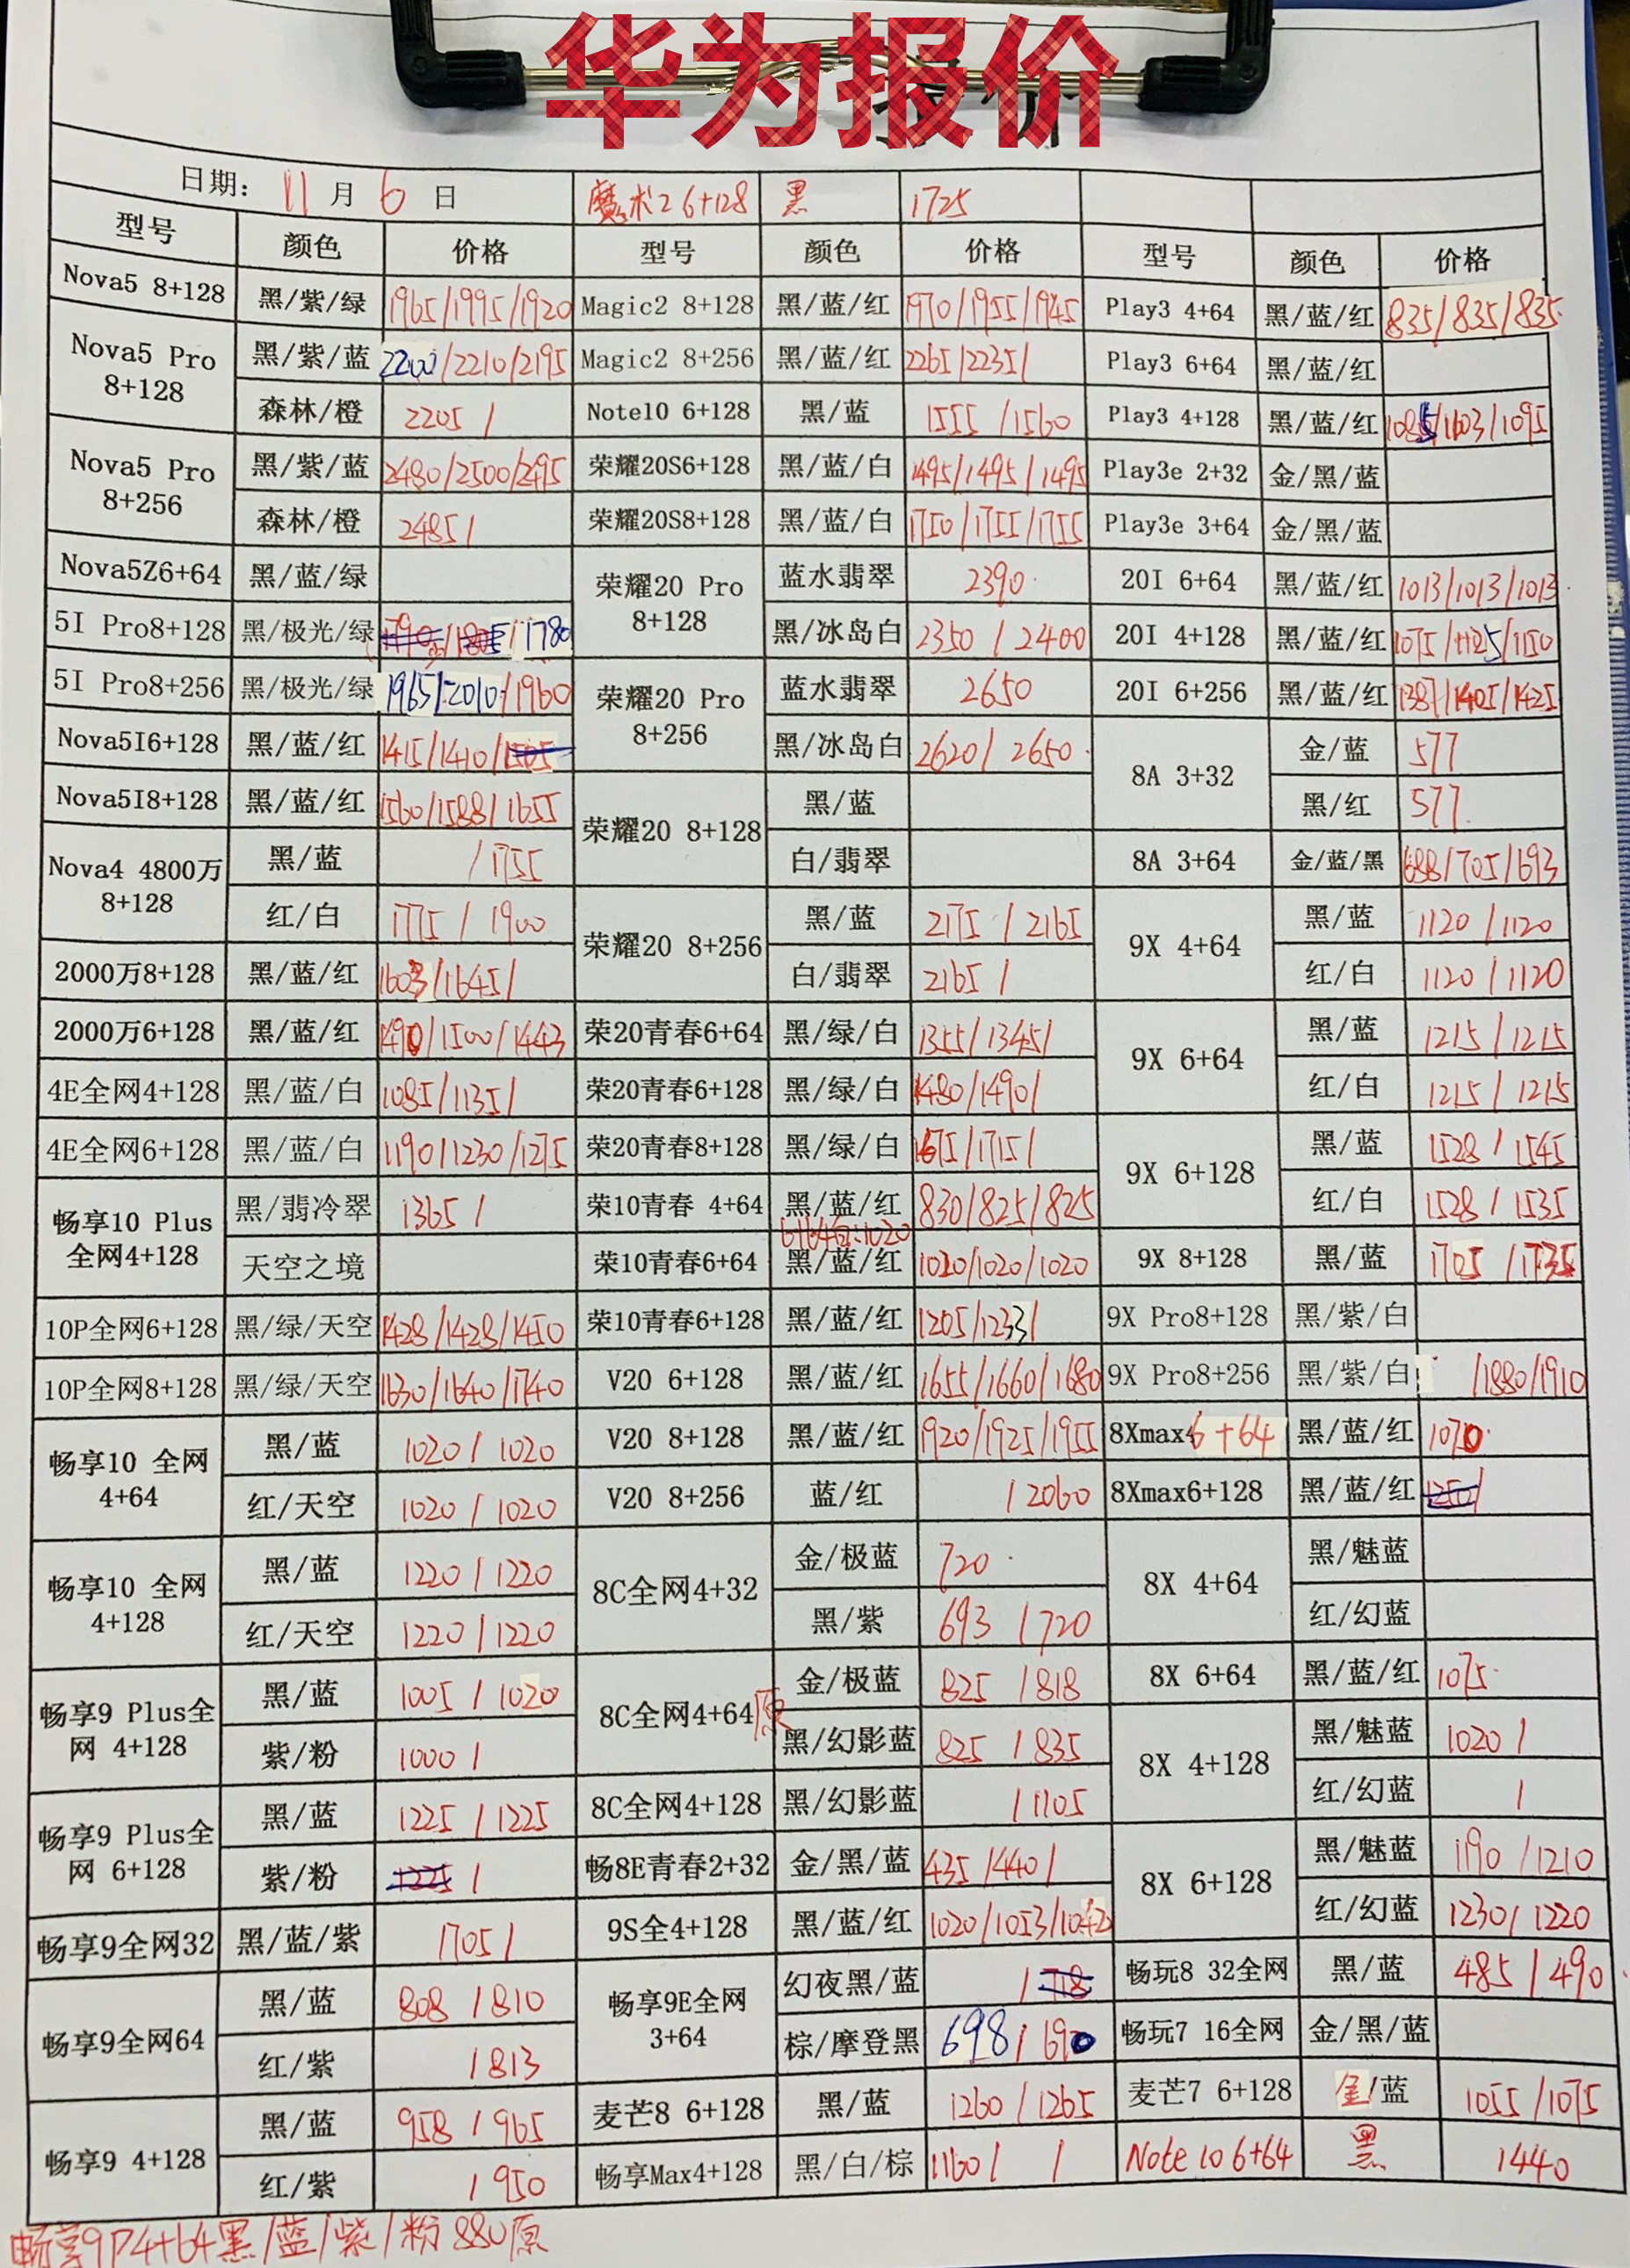 华为报价
日期： 11 月 6 日 魔术2 6+128 黑 1725
型号 颜色 价格 型号 颜色 价格 型号 颜色 价格
Nova5 8+128 黑/紫/绿 1965/1995/1920 Magic2 8+128 黑/蓝/红 1970/1955/1945 Play3 4+64 黑/蓝/红 835/835/835
Nova5 Pro 8+128 黑/紫/蓝 2200/2210/2195 Magic2 8+256 黑/蓝/红 2265/2235/ Play3 6+64 黑/蓝/红
森林/橙 2205 / Note10 6+128 黑/蓝 1555 /1560 Play3 4+128 黑/蓝/红 1085/1103/1095
Nova5 Pro 8+256 黑/紫/蓝 2480/2500/2495 荣耀20S6+128 黑/蓝/白 1495/1495/1495 Play3e 2+32 金/黑/蓝
森林/橙 2485/ 荣耀20S8+128 黑/蓝/白 1750/1755/1755 Play3e 3+64 金/黑/蓝
Nova5Z6+64 黑/蓝/绿 荣耀20 Pro 8+128 蓝水翡翠 2390 20I 6+64 黑/蓝/红 1013/1013/1013
5I Pro8+128 黑/极光/绿 /1780 黑/冰岛白 2350 / 2400 20I 4+128 黑/蓝/红 1075/1125/1150
5I Pro8+256 黑/极光/绿 1965/2010/1960 荣耀20 Pro 8+256 蓝水翡翠 2650 20I 6+256 黑/蓝/红 1387/1405/1425
Nova5I6+128 黑/蓝/红 1415/1410/1505 黑/冰岛白 2620/ 2650 8A 3+32 金/蓝 577
Nova5I8+128 黑/蓝/红 1560/1588/1655 荣耀20 8+128 黑/蓝 黑/红 577
Nova4 4800万 8+128 黑/蓝 /1755 白/翡翠 8A 3+64 金/蓝/黑 688/705/693
红/白 1775 / 1900 荣耀20 8+256 黑/蓝 2175 / 2165 9X 4+64 黑/蓝 1120 /1120
2000万8+128 黑/蓝/红 1603/1645/ 白/翡翠 2165 / 红/白 1120 / 1120
2000万6+128 黑/蓝/红 1490/1500/1443 荣20青春6+64 黑/绿/白 1355/1345/ 9X 6+64 黑/蓝 1215 / 1215
4E全网4+128 黑/蓝/白 1085/1135/ 荣20青春6+128 黑/绿/白 1480/1490/ 红/白 1215 / 1215
4E全网6+128 黑/蓝/白 1190/1230/1275 荣20青春8+128 黑/绿/白 1675/1715/ 9X 6+128 黑/蓝 1528 / 1545
畅享10 Plus 全网4+128 黑/翡冷翠 1365 / 荣10青春 4+64 黑/蓝/红 830/825/825 红/白 1528 / 1535
6+64白:1020
天空之境 荣10青春6+64 黑/蓝/红 1020/1020/1020 9X 8+128 黑/蓝 1705 /1735
10P全网6+128 黑/绿/天空 1428/1428/1450 荣10青春6+128 黑/蓝/红 1205/1233/ 9X Pro8+128 黑/紫/白
10P全网8+128 黑/绿/天空 1630/1640/1740 V20 6+128 黑/蓝/红 1655/1660/1680 9X Pro8+256 黑/紫/白 /1880/1910
畅享10 全网 4+64 黑/蓝 1020 / 1020 V20 8+128 黑/蓝/红 1920/1925/1955 8Xmax6+64 黑/蓝/红 1070
红/天空 1020 / 1020 V20 8+256 蓝/红 / 2060 8Xmax6+128 黑/蓝/红 1250/
畅享10 全网 4+128 黑/蓝 1220 / 1220 8C全网4+32 金/极蓝 720 8X 4+64 黑/魅蓝
红/天空 1220 / 1220 黑/紫 693 /720 红/幻蓝
畅享9 Plus全网 4+128 黑/蓝 1005 / 1020 8C全网4+64原 金/极蓝 825 /818 8X 6+64 黑/蓝/红 1075
紫/粉 1000 / 黑/幻影蓝 825 / 835 8X 4+128 黑/魅蓝 1020 /
畅享9 Plus全网 6+128 黑/蓝 1225 / 1225 8C全网4+128 黑/幻影蓝 / 1105 红/幻蓝 /
紫/粉 1225 / 畅8E青春2+32 金/黑/蓝 435 /440/ 8X 6+128 黑/魅蓝 1190 /1210
畅享9全网32 黑/蓝/紫 1705/ 9S全4+128 黑/蓝/红 1020/1053/1042 红/幻蓝 1230/ 1220
畅享9全网64 黑/蓝 808 /810 畅享9E全网 3+64 幻夜黑/蓝 / 718 畅玩8 32全网 黑/蓝 485 / 490
红/紫 / 813 棕/摩登黑 698/ 690 畅玩7 16全网 金/黑/蓝
畅享9 4+128 黑/蓝 958 / 965 麦芒8 6+128 黑/蓝 1260 / 1265 麦芒7 6+128 金/蓝 1055 /1075
红/紫 / 950 畅享Max4+128 黑/白/棕 1160 / / Note 10 6+64 黑 1440
畅享9P4+64黑/蓝/紫/粉 880原